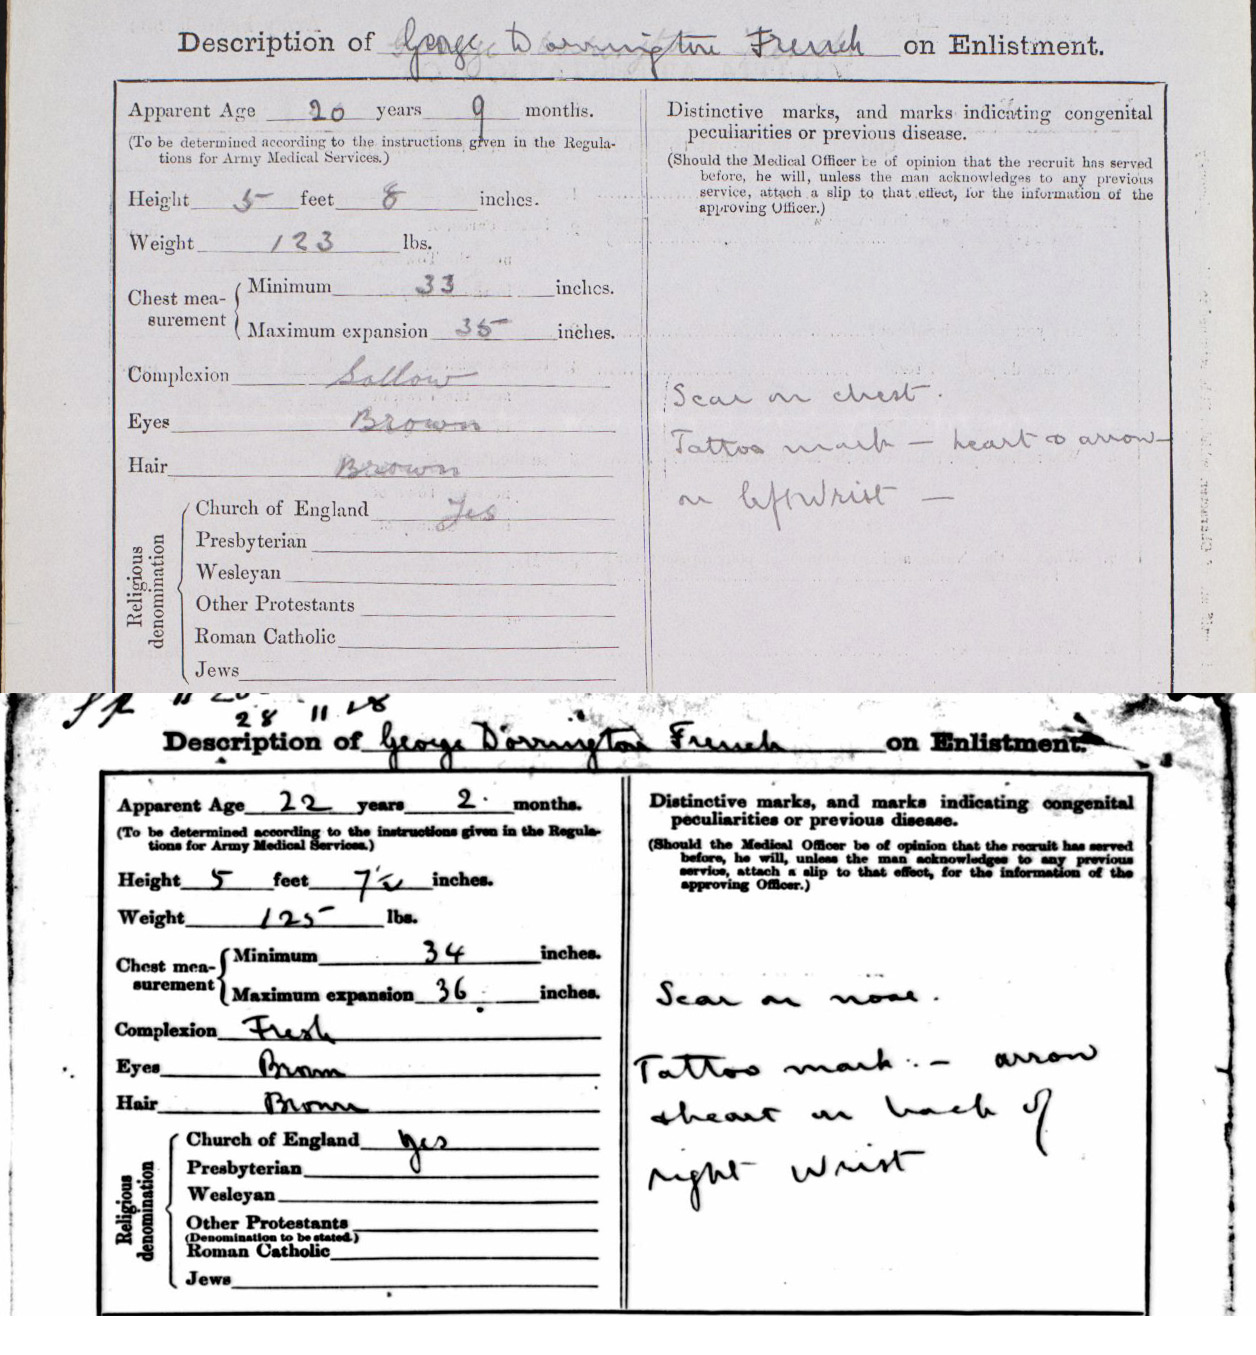 Description of George Dorrington French on Enlistment.
Apparent Age 20 years 9 months.
(To be determined according to the instructions given in the Regula-
tions for Army Medical Services.)
Height 5 feet 8 inches.
Weight 123 lbs.
Chest mea-
surement
Minimum 33 inches.
Maximum expansion 35 inches.
Complexion Sallow
Eyes Brown
Hair Brown
Religious
denomination
Church of England Yes
Presbyterian
Wesleyan
Other Protestants
Roman Catholic
Jews
Distinctive marks, and marks indicating congenital
peculiarities or previous disease.
(Should the Medical Officer be of opinion that the recruit has served
before, he will, unless the man acknowledges to any previous
service, attach a slip to that effect, for the information of the
approving Officer.)
Scar on chest.
Tattoo mark — heart & arrow —
on left wrist —
28 11 18
Description of George Dorrington French on Enlistment.
Apparent Age 22 years 2. months.
(To be determined according to the instructions given in the Regula-
tions for Army Medical Services.)
Height 5 feet 7½ inches.
Weight 125 lbs.
Chest mea-
surement
Minimum 34 inches.
Maximum expansion 36 inches.
Complexion Fresh
Eyes Brown
Hair Brown
Religious
denomination
Church of England Yes
Presbyterian
Wesleyan
Other Protestants
(Denomination to be stated.)
Roman Catholic
Jews
Distinctive marks, and marks indicating congenital
peculiarities or previous disease.
(Should the Medical Officer be of opinion that the recruit has served
before, he will, unless the man acknowledges to any previous
service, attach a slip to that effect, for the information of the
approving Officer.)
Scar on nose.
Tattoo mark. — arrow
& heart on back of
right wrist